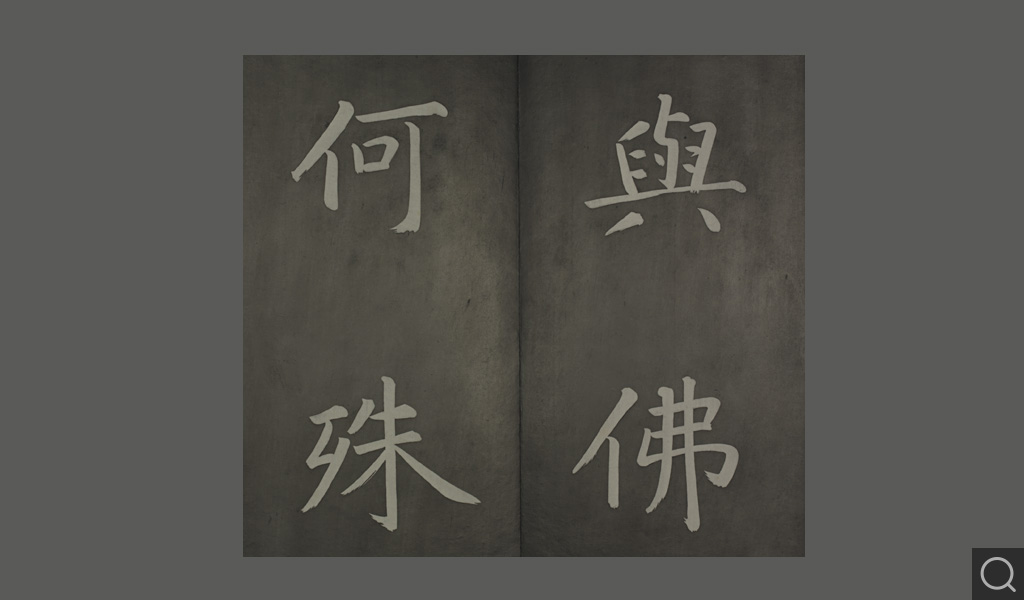 與佛
何殊